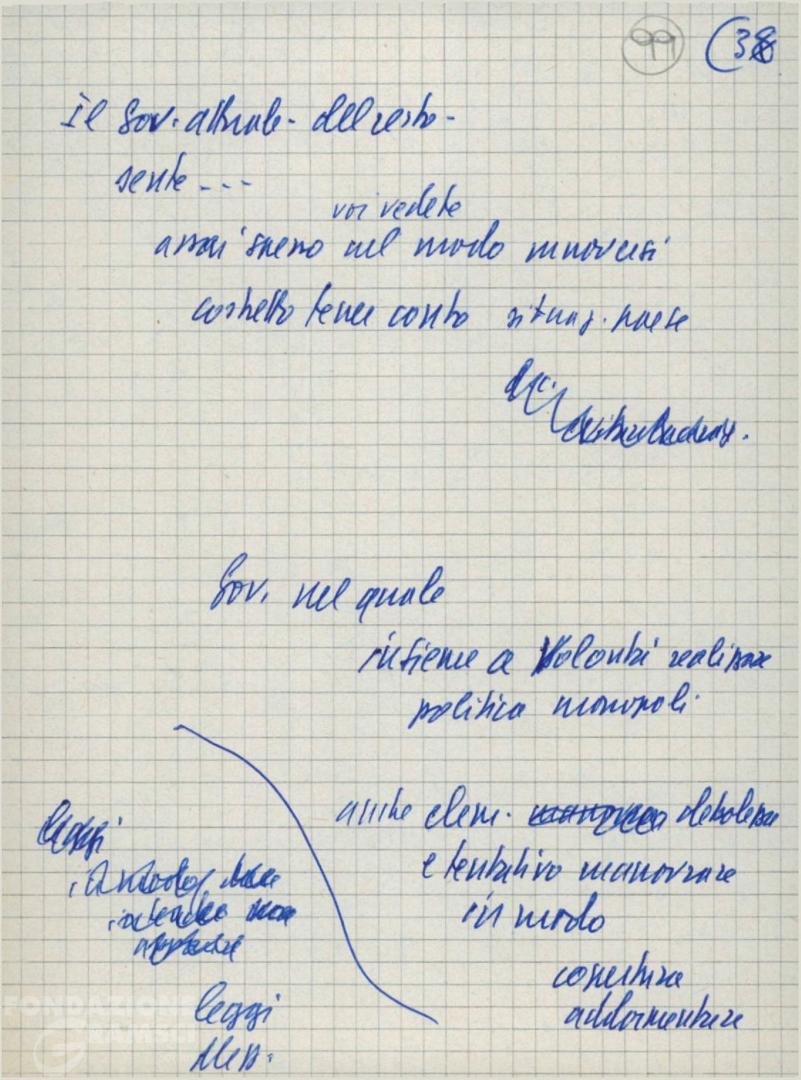 99 (38
Il Gov. attuale - del resto -
sente ---
voi vedete
assai spesso nel modo muoversi
costretto tener conto situaz. paese
Gov. nel quale
insieme a volontà realizzare
politica monopoli
anche elem. debolezza
e tentativo manovrare
in modo
copertura
addormentare
leggi
leggi
FONDAZIONE
GRAMSCI